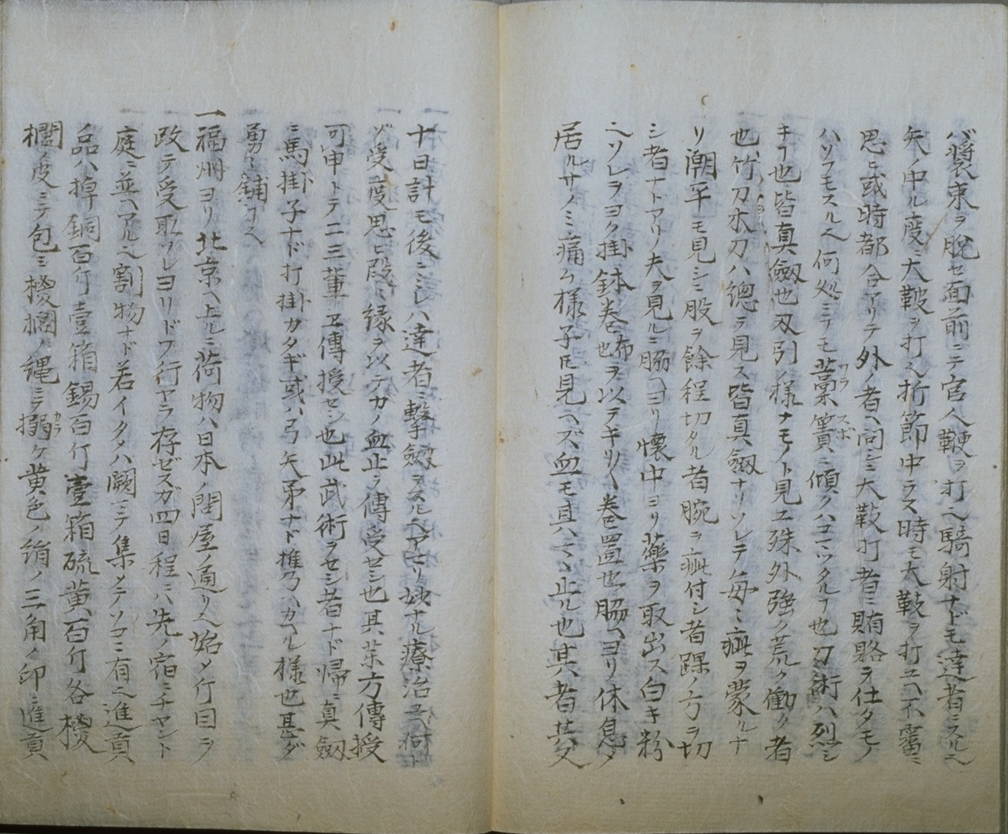 バ裝束ヲ脱セ面前ニテ官人鞭ヲ打ヘ騎射ナドモ達者ニスル也
矢ノ中ル度ニ大鞁ヲ打ヘ折節中ラヌ時モ大鞁ヲ打ユヘ不審ニ
思ヒ或時都合アリテ外者ヘ問シニ大鞁打者ニ賄賂ヲ仕タモノ
ハソフモスルヘ何処ニテモ藁簀ニ傾クハコニツタルフ也刀術ハ烈シ
キフ也皆真劔也刄引様ナモノト見ユ殊外強ク荒ク働ク者
也竹刀木刀ハ總テ見ス皆真劔ナリソレテ毎ミ疵ヲ蒙ルナ
リ潮平モ見シニ股ヲ餘程切タル者腕ヲ疵付シ者踝ノ方ヲ切
シ者ナドアリノ夫ヲ見ルニ脇ヘヨリ懐中ヨリ藥ヲ取出ス白キ粉
ヘソレヲヨク掛鉢巻ノ布ヲ以テキリ〱巻置也脇ヘヨリ休息シ
居ルサノミ痛ム様子圧見ヘズ血モ其マヽ止ル也其者其父
十日計モ後ニミレハ達者ニ撃劔ヲスル也アマリ妙ナル療治ユヘ何卜
ゾ受度思ヒ段ミ縁ヲ以テカノ血止ヲ傳受セシ也其茶方傳授
可申トテ二三輩ヱ傳授セシ也此武術ヲセシ者ナド帰ニ真劔
ニ馬掛子ナド打掛カタギ或ハ弓矢弟ナド推乃ハカヘル様也甚ダ
勇ミ舗フヘ
一福州ヨリ北京ヘ上ルニ荷物ハ日本ノ問屋通リ入始メ行目ヲ
改テ受取ソレヨリドフ行ヤラ存ゼスガ四日程ニハ先ノ宿ニチヤント
庭ニ並ヘアル也割物ナド若イタメハ闕ニテ集メテソコニ有之進貢
品ハ掉銅百斤壹箱錫百斤壹箱硫黄百斤各椶
櫚ノ皮ニテ包ミ椶櫚ノ縄ニテ搦ケ黄色ノ絹ノ三角ノ印ニ進貢